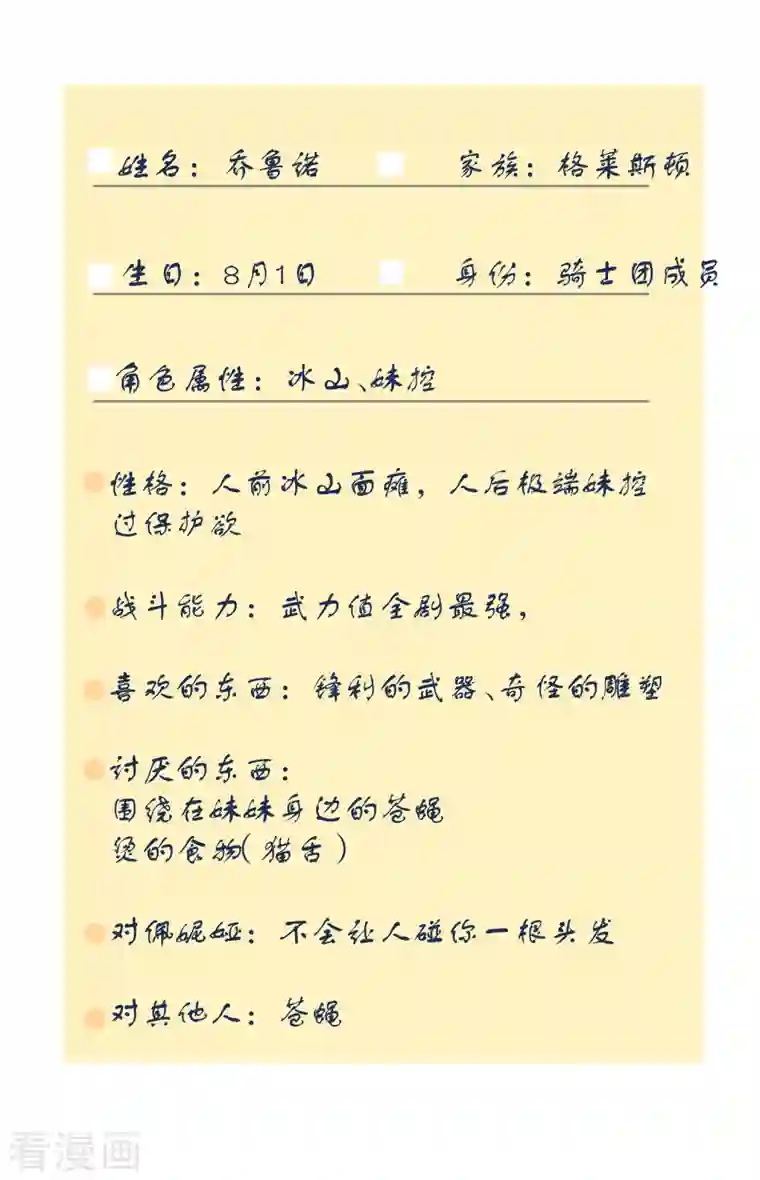 姓名：乔鲁诺 家族：格莱斯顿
生日：8月1日 身份：骑士团成员
角色属性：冰山、妹控
性格：人前冰山面瘫，人后极端妹控
过保护欲
战斗能力：武力值全剧最强，
喜欢的东西：锋利的武器、奇怪的雕塑
讨厌的东西：
围绕在妹妹身边的苍蝇
烫的食物（猫舌）
对佩妮娅：不会让人碰你一根头发
对其他人：苍蝇
看漫画